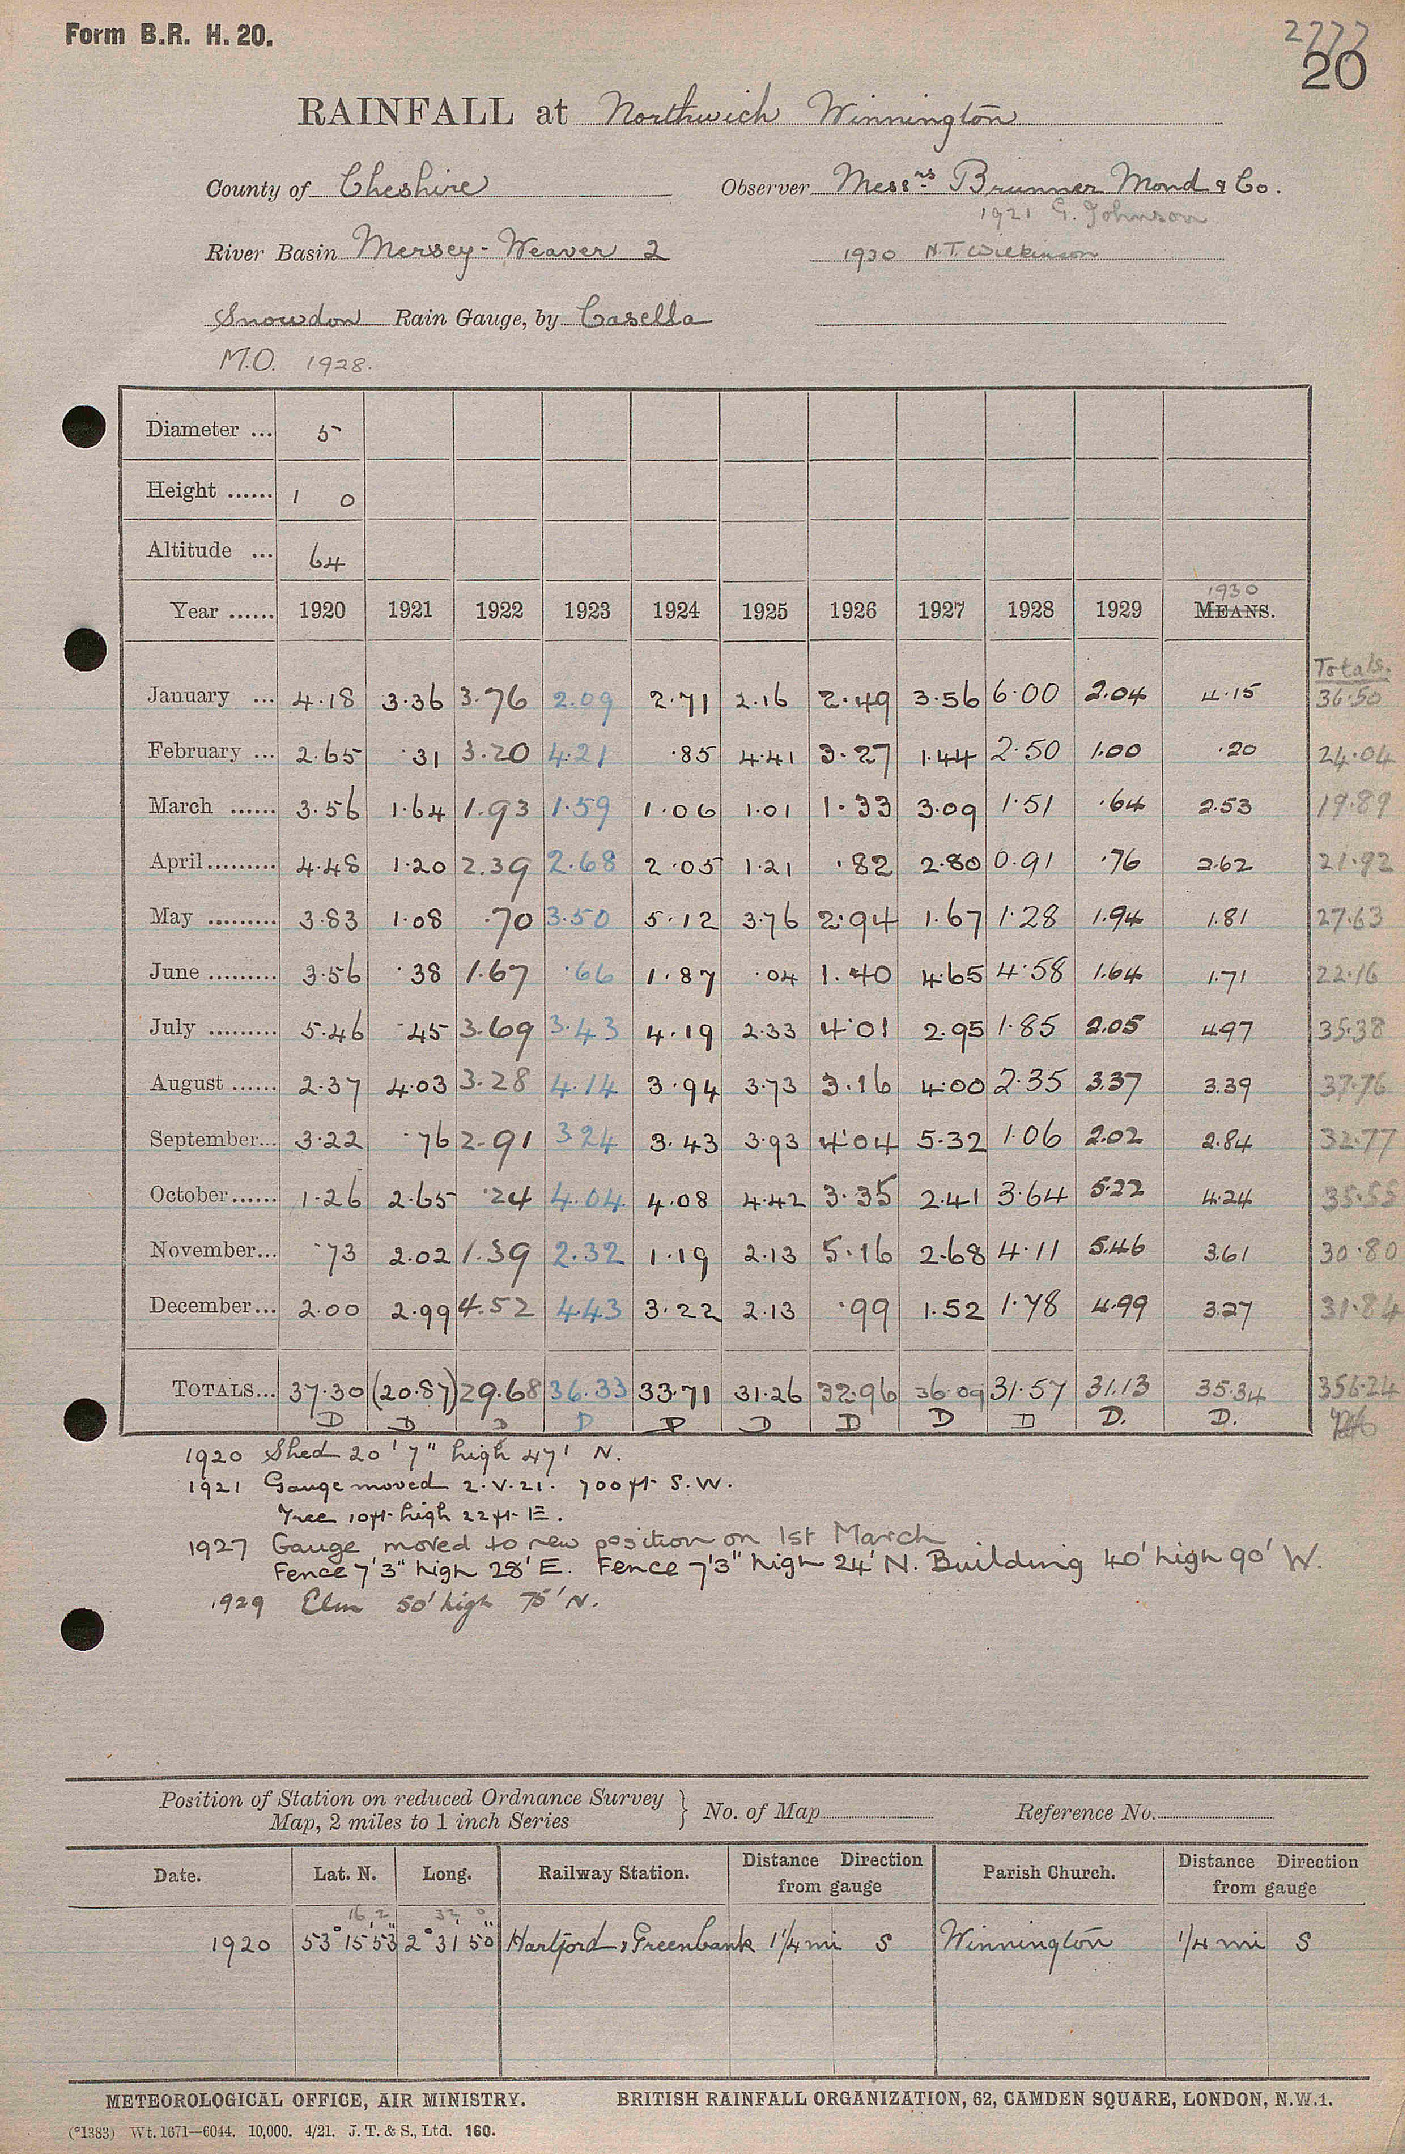 Form B.R. H. 20.
2777
20
RAINFALL at Northwich Winnington
County of Cheshire Observer Messrs Brunner Mond & Co.
1921 G. Johnson
River Basin Mersey-Weaver 2 1930 N.T. Wilkinson
Snowdon Rain Gauge, by Casella
M.O. 1928.
Diameter ... 5
Height ...... 1 0
Altitude ... 64
1930
Year ...... 1920 1921 1922 1923 1924 1925 1926 1927 1928 1929 MEANS.
Totals.
January ... 4.18 3.36 3.76 2.09 2.71 2.16 2.49 3.56 6.00 2.04 4.15 36.50
February ... 2.65 .31 3.20 4.21 .85 4.41 3.27 1.44 2.50 1.00 .20 24.04
March ...... 3.56 1.64 1.93 1.59 1.06 1.01 1.33 3.09 1.51 .64 2.53 19.89
April......... 4.48 1.20 2.39 2.68 2.05 1.21 .82 2.80 0.91 .76 2.62 21.92
May ......... 3.83 1.08 .70 3.50 5.12 3.76 2.94 1.67 1.28 1.94 1.81 27.63
June ......... 3.56 .38 1.67 .66 1.87 .04 1.40 4.65 4.58 1.64 1.71 22.16
July ......... 5.46 .45 3.69 3.43 4.19 2.33 4.01 2.95 1.85 2.05 4.97 35.38
August ...... 2.37 4.03 3.28 4.14 3.94 3.73 3.16 4.00 2.35 3.37 3.39 37.76
September... 3.22 .76 2.91 3.24 3.43 3.93 4.04 5.32 1.06 2.02 2.84 32.77
October...... 1.26 2.65 .24 4.04 4.08 4.42 3.35 2.41 3.64 5.22 4.24 35.55
November... .73 2.02 1.39 2.32 1.19 2.13 5.16 2.68 4.11 5.46 3.61 30.80
December... 2.00 2.99 4.52 4.43 3.22 2.13 .99 1.52 1.78 4.99 3.27 31.84
TOTALS... 37.30 (20.87) 29.68 36.33 33.71 31.26 32.96 36.09 31.57 31.13 35.34 356.24
D D D D D D D D D D. D.
1920 Shed 20' 7" high 47' N.
1921 Gauge moved 2.V.21. 700 ft. S.W.
Tree 10ft. high 22 ft. E.
1927 Gauge moved to new position on 1st March
Fence 7'3" high 28' E. Fence 7'3" high 24' N. Building 40' high 90' W.
1929 Elm 50' high 75' N.
Position of Station on reduced Ordnance Survey
Map, 2 miles to 1 inch Series } No. of Map Reference No.
Date. Lat. N. Long. Railway Station. Distance Direction from gauge Parish Church. Distance Direction from gauge
16 2 32 0
1920 53° 15' 53" 2° 31' 50" Hartford & Greenbank 1 1/4 mi S Winnington 1/4 mi S
METEOROLOGICAL OFFICE, AIR MINISTRY. BRITISH RAINFALL ORGANIZATION, 62, CAMDEN SQUARE, LONDON, N.W.1.
(°1383) Wt. 1671—6044. 10,000. 4/21. J. T. & S., Ltd. 160.